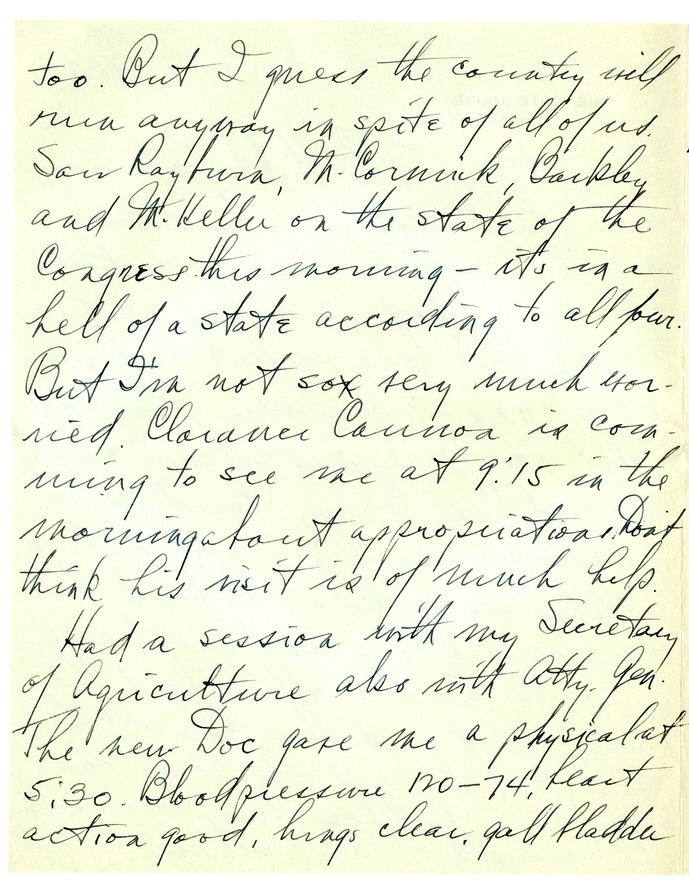 too. But I guess the country will
run anyway in spite of all of us.
Saw Rayburn, McCormick, Barkley
and McKeller on the state of the
Congress this morning – it's in a
hell of a state according to all four.
But I'm not sox very much wor-
ried. Clarance Cannon is com-
ming to see me at 9:15 in the
morning about appropriations. Don't
think his visit is of much help.
Had a session with my Secretary
of Agriculture also with Atty. Gen.
The new Doc gave me a physical at
5:30. Bloodpressure 120–74, heart
action good, lungs clear, gall bladder